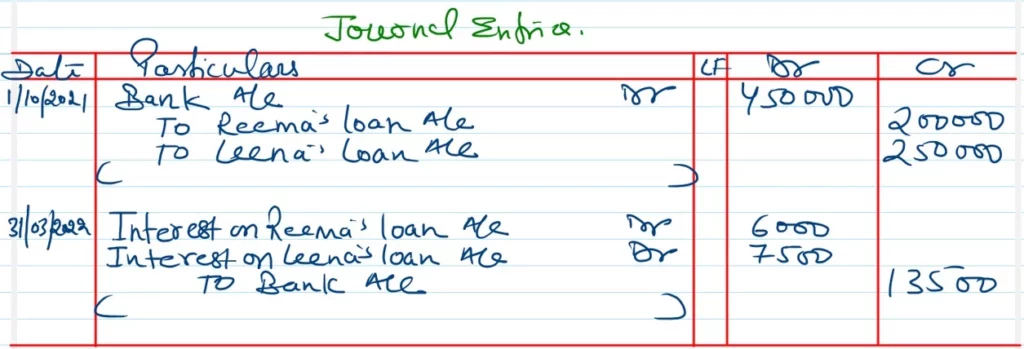 Journal Entries.
Date Particulars LF Dr Cr
1/10/2021 Bank A/c Dr 450000
To Reema's loan A/c 200000
To Leena's Loan A/c 250000
( )
31/03/2022 Interest on Reema's loan A/c Dr 6000
Interest on Leena's loan A/c Dr 7500
To Bank A/c 13500
( )